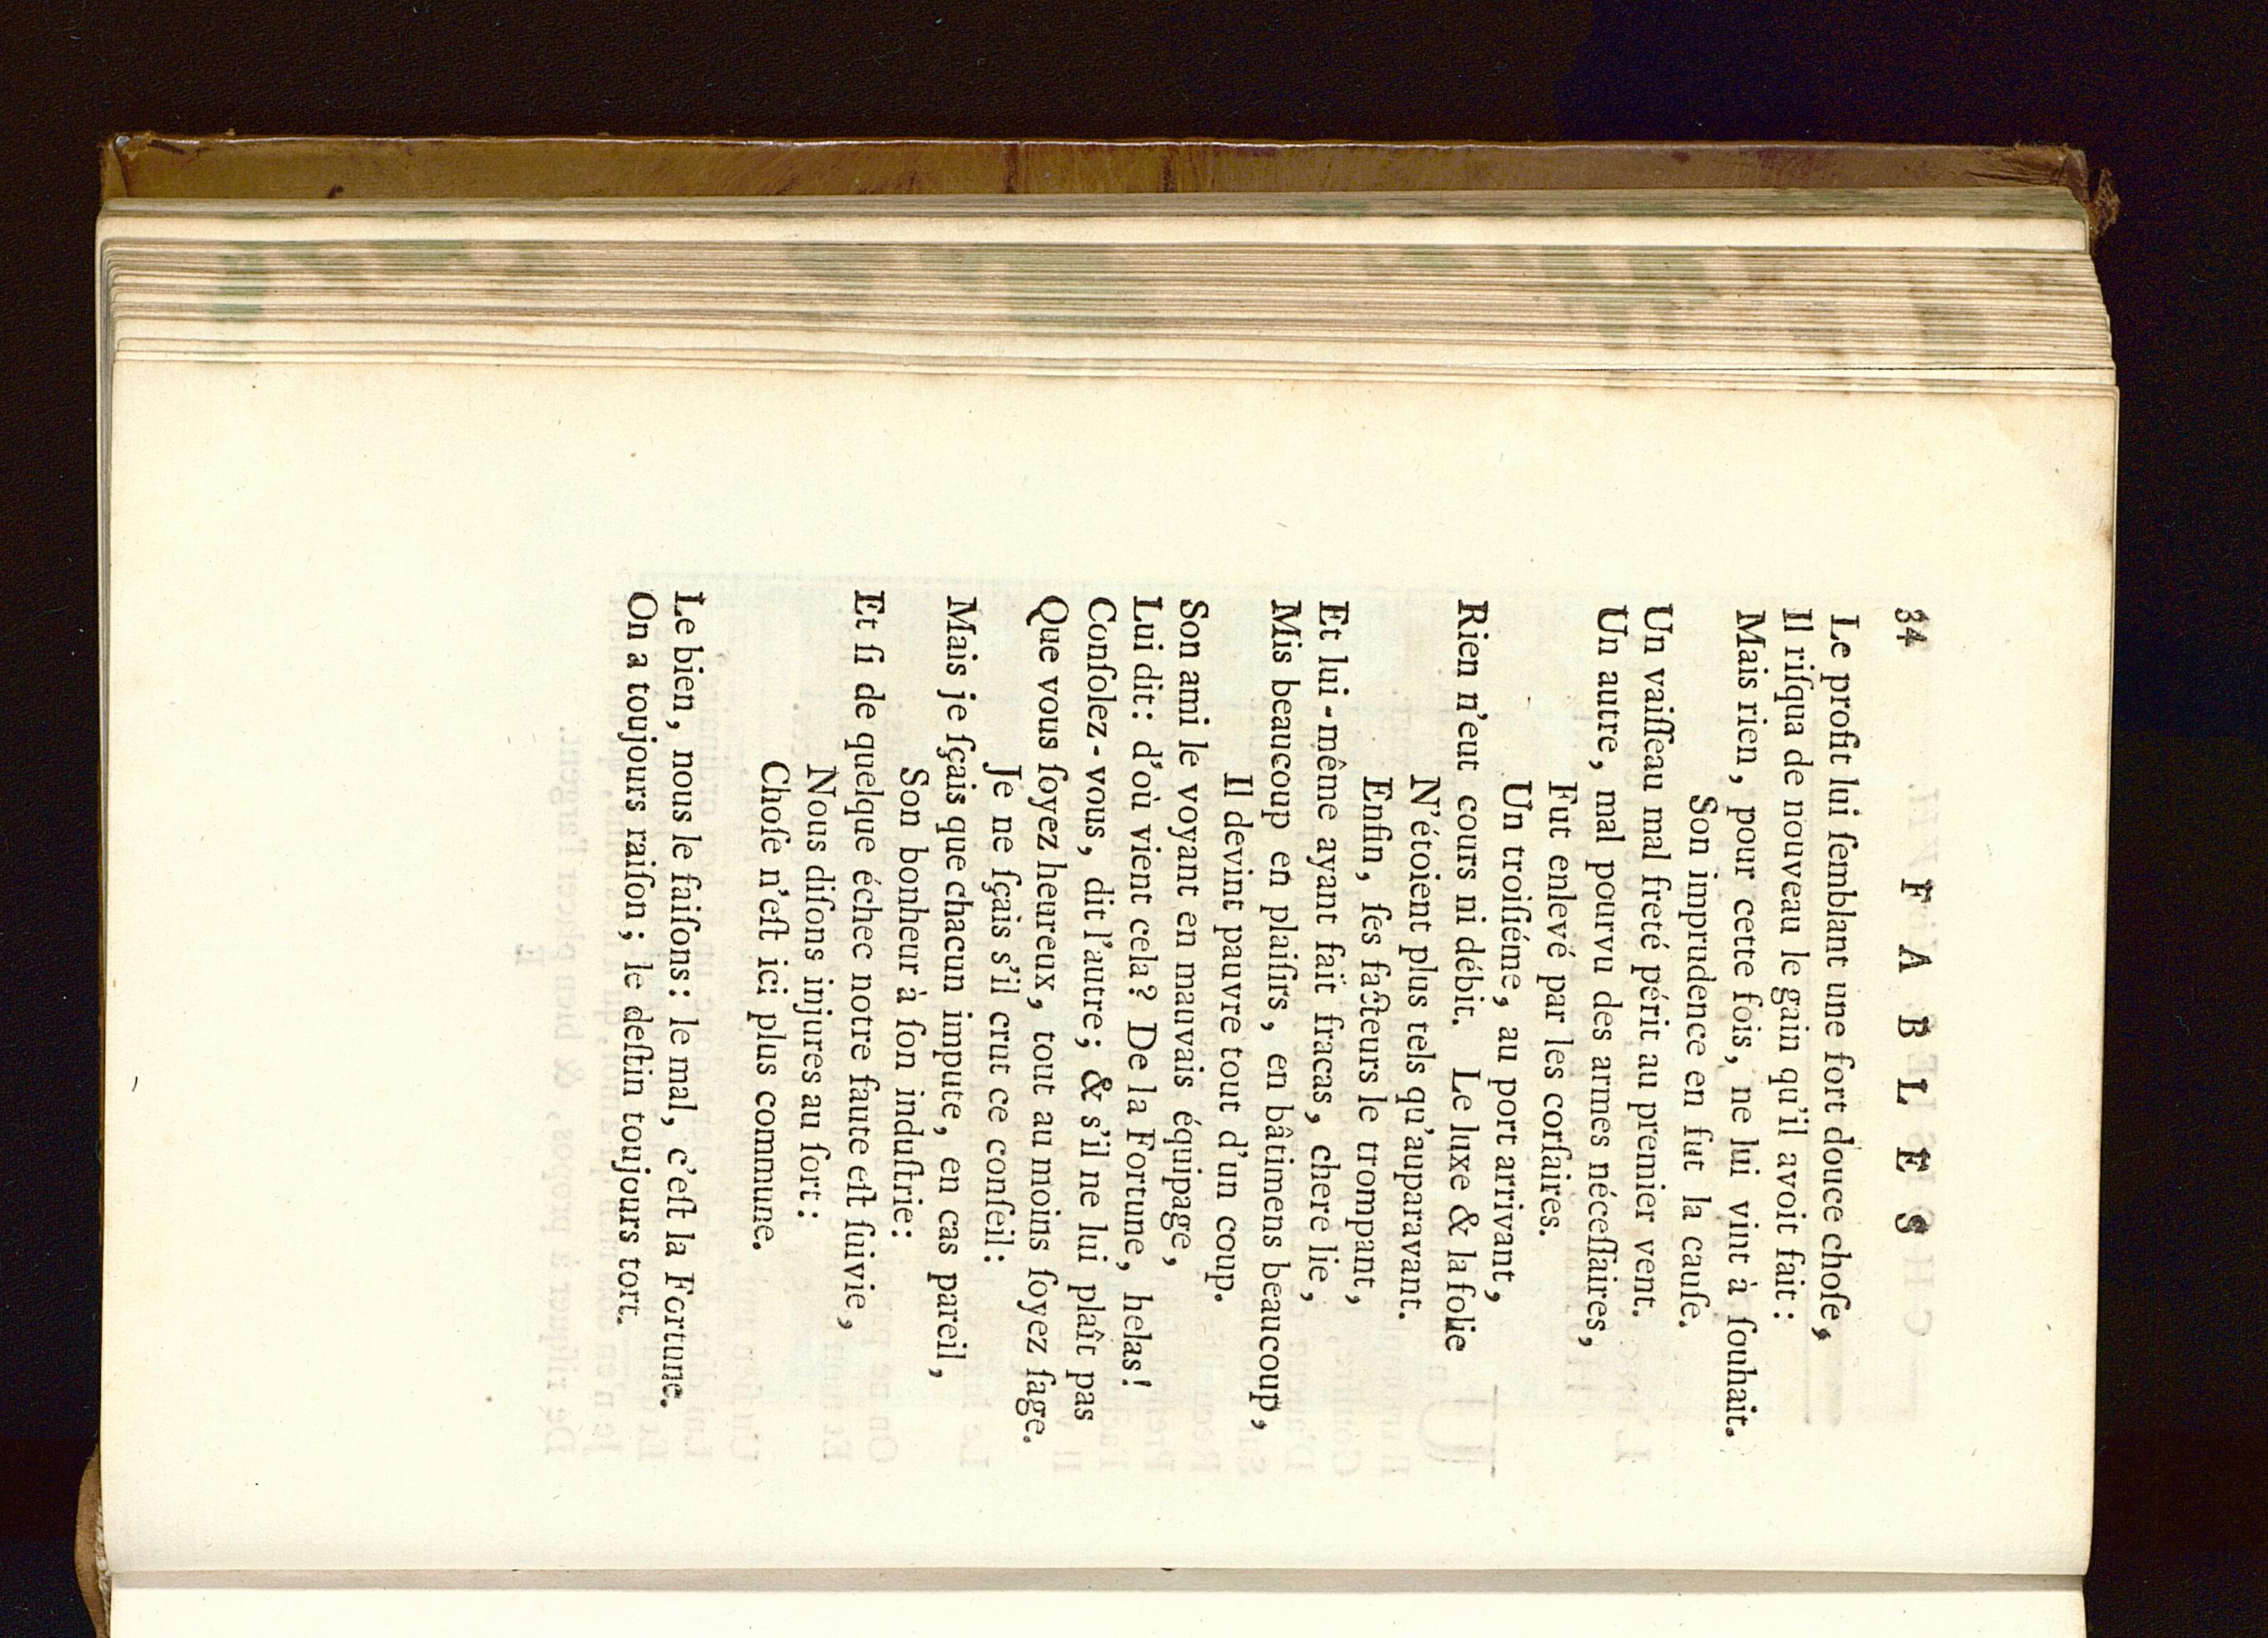 34 FABLES
Le profit lui ſemblant une fort douce choſe,
Il riſqua de nouveau le gain qu'il avoit fait :
Mais rien, pour cette fois, ne lui vint à ſouhait.
Son imprudence en fut la cauſe.
Un vaiſſeau mal freté périt au premier vent.
Un autre, mal pourvu des armes néceſſaires,
Fut enlevé par les corſaires.
Un troiſiéme, au port arrivant,
Rien n'eut cours ni débit. Le luxe & la folie
N'étoient plus tels qu'auparavant.
Enfin, ſes facteurs le trompant,
Et lui-même ayant fait fracas, chere lie,
Mis beaucoup en plaiſirs, en bâtimens beaucoup,
Il devint pauvre tout d'un coup.
Son ami le voyant en mauvais équipage,
Lui dit : d'où vient cela ? De la Fortune, helas !
Conſolez-vous, dit l'autre ; & s'il ne lui plaît pas
Que vous ſoyez heureux, tout au moins ſoyez ſage.
Je ne ſçais s'il crut ce conſeil :
Mais je ſçais que chacun impute, en cas pareil,
Son bonheur à ſon induſtrie :
Et ſi de quelque échec notre faute eſt ſuivie,
Nous diſons injures au ſort :
Choſe n'eſt ici plus commune.
Le bien, nous le faiſons : le mal, c'eſt la Fortune.
On a toujours raiſon ; le deſtin toujours tort.